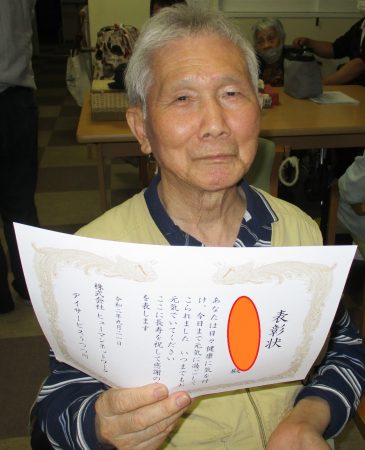 表彰状
殿
あなたは日々健康に気を付
け、今日まで元気に過ごして
こられました いつまでもお
元気でいてください
ここに長寿を祝して感謝の
を表します
令和二年九月二一日
株式会社 ヒューマンネットワーム